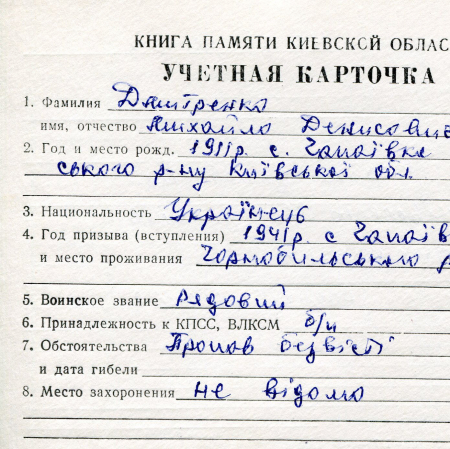 КНИГА ПАМЯТИ КИЕВСКОЙ ОБЛАС
УЧЕТНАЯ КАРТОЧКА
1. Фамилия Дмитренко
имя, отчество Михайло Денисович
2. Год и место рожд. 1911р. с. Чапаївка
ського р-ну Київської обл.
3. Национальность Українець
4. Год призыва (вступления) 1941р. с Чапаїв
и место проживания Чорнобильського р
5. Воинское звание Рядовий
6. Принадлежность к КПСС, ВЛКСМ б/п
7. Обстоятельства Пропав безвісті
и дата гибели
8. Место захоронения не відомо